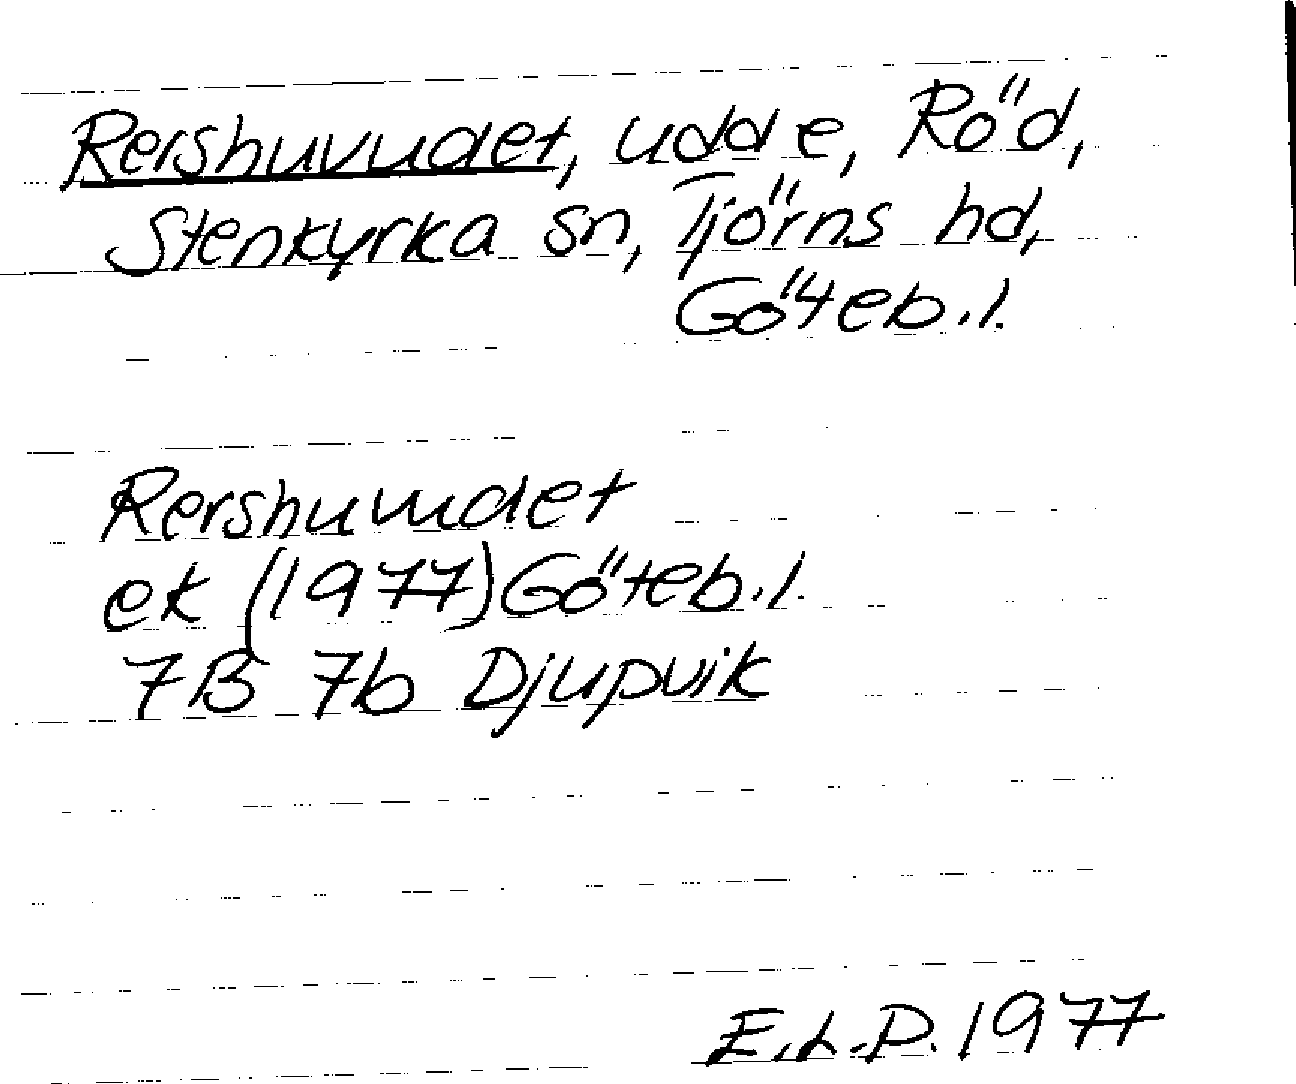 Rershuvudet, udde, Röd,
Stenkyrka sn, Tjörns hd,
Göteb.l.
Rershuvudet
ek (1977) Göteb.l.
7B 7b Djupvik
E.L.P. 1977